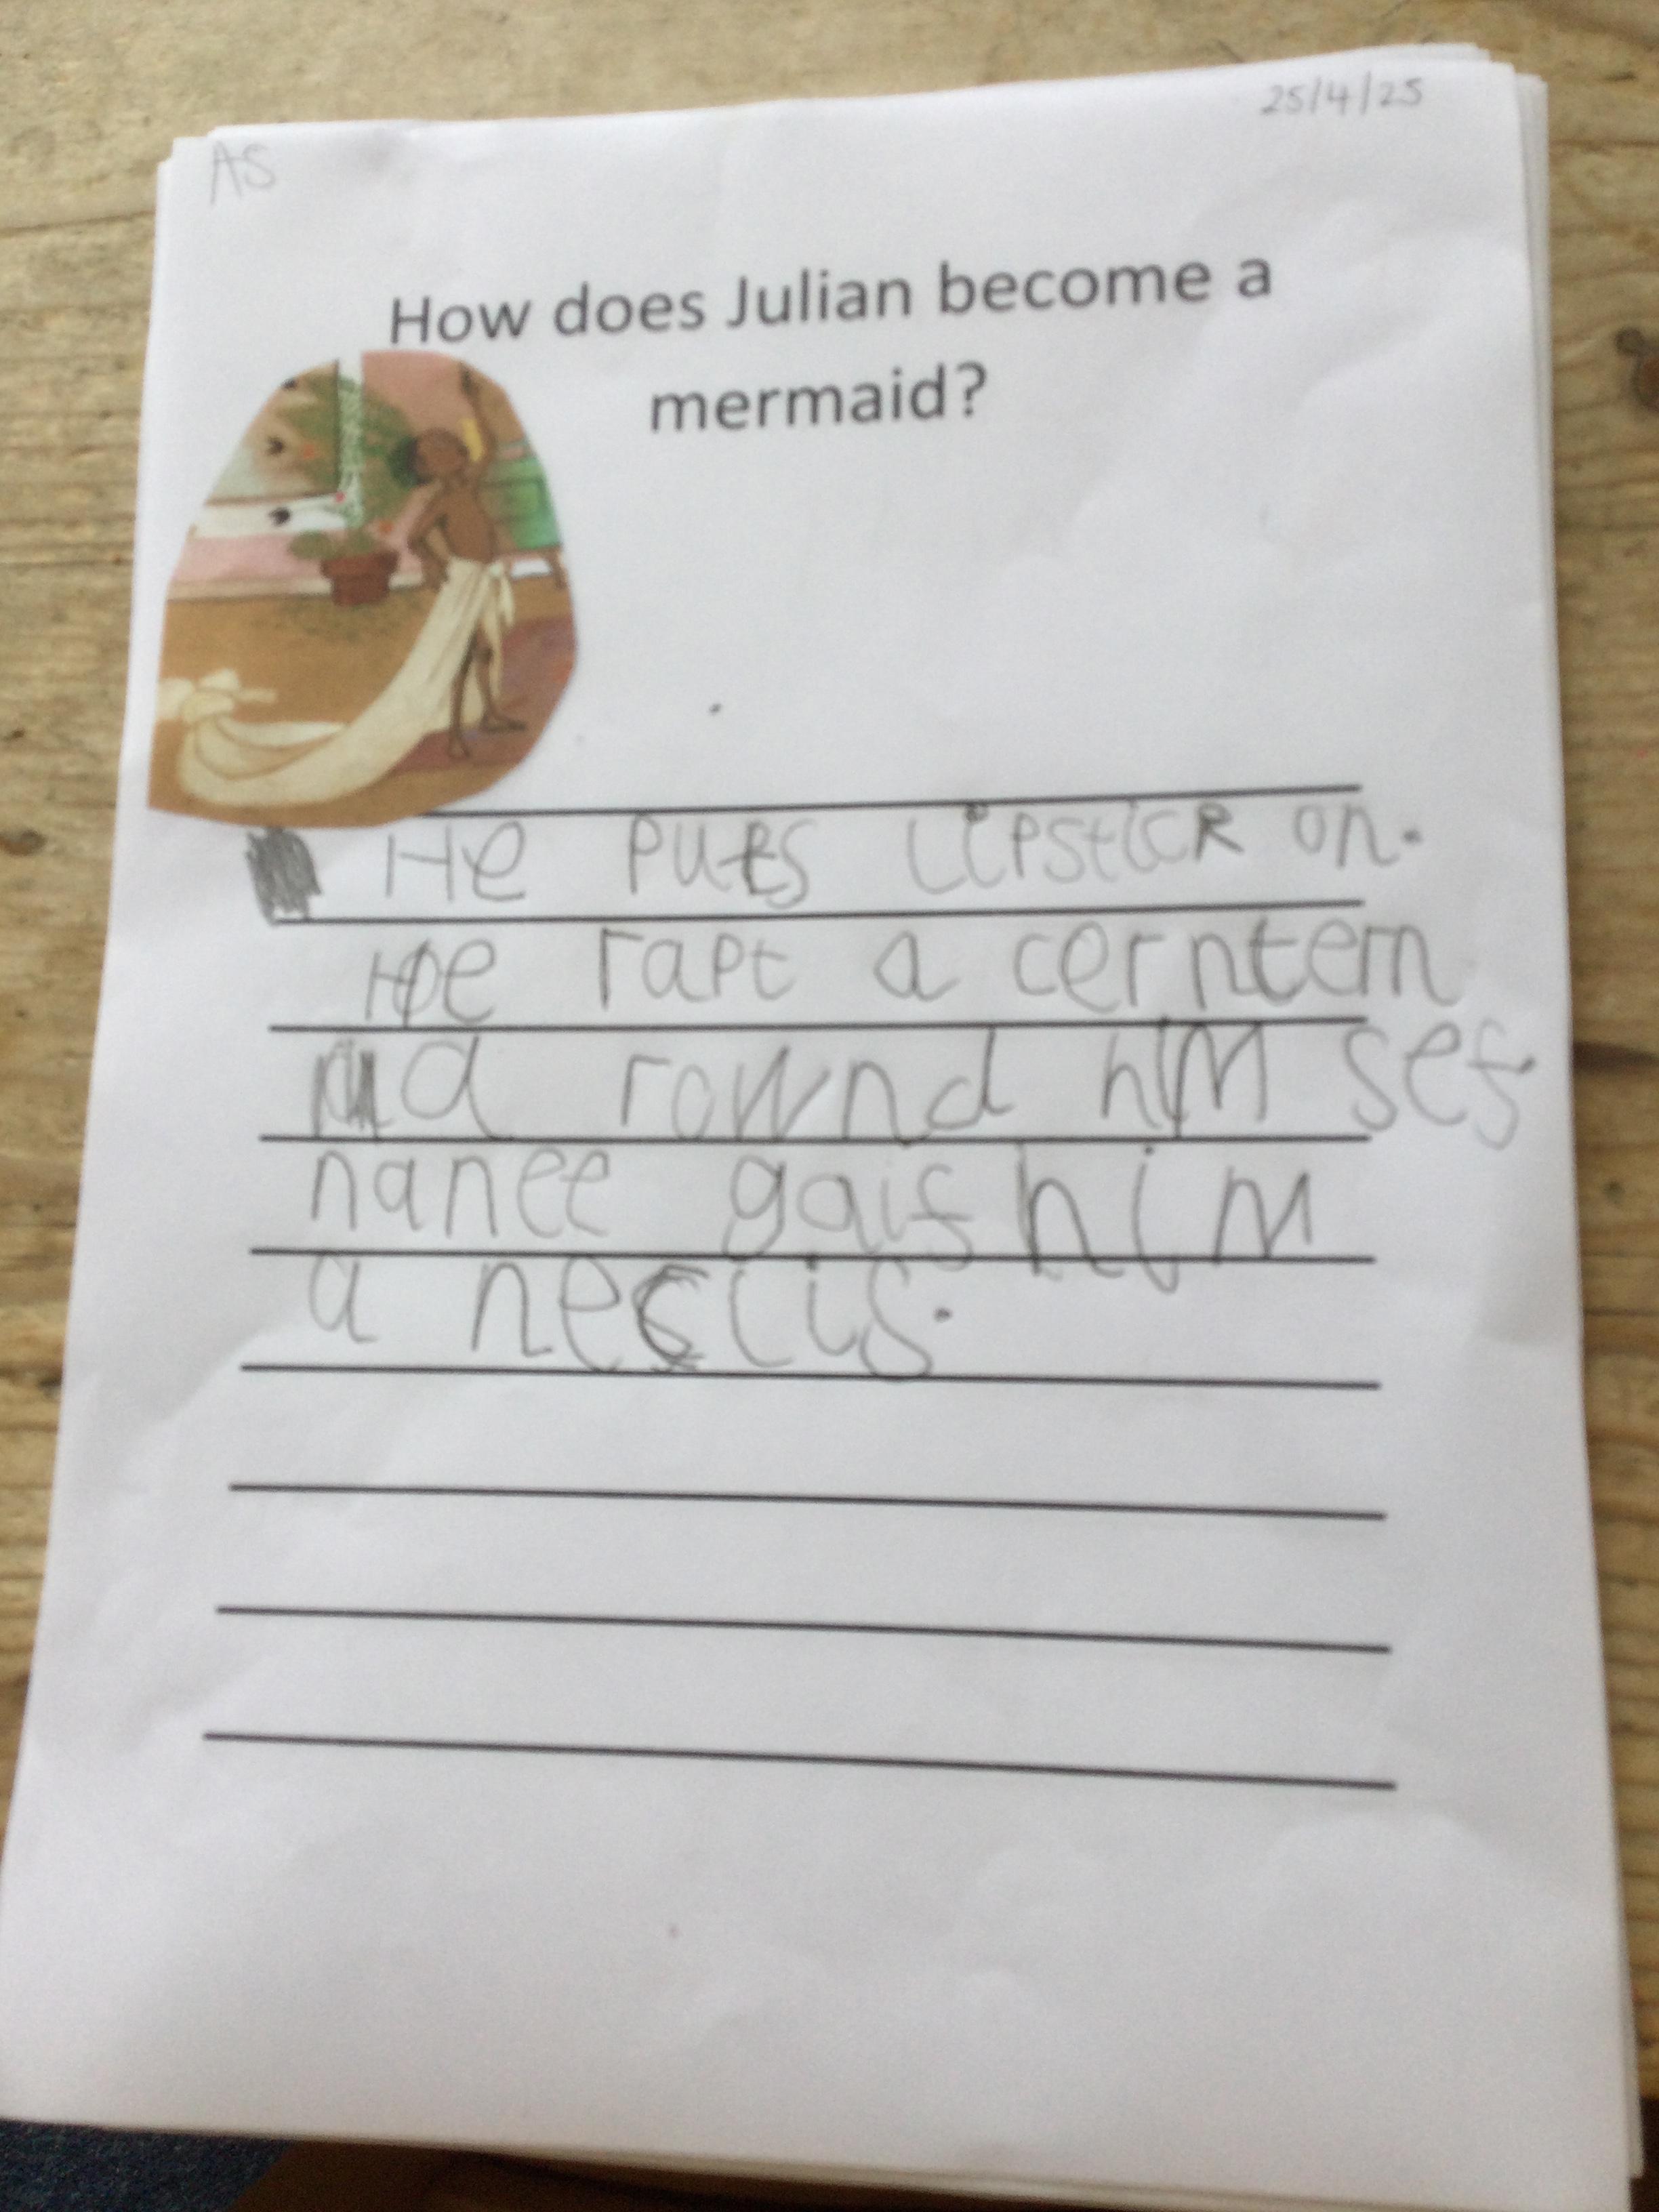 AS
25/4/25
How does Julian become a
mermaid?
He puts lipstick on.
He rapt a cerntern
a rownd him sef.
nanee gaif him
a neclis.